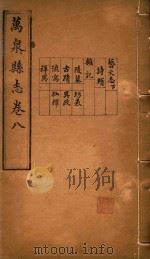 萬泉縣志卷八
藝文志下
詩類
雜記
陵墓 坊表
古蹟 異政
流寓 仙釋
祥異